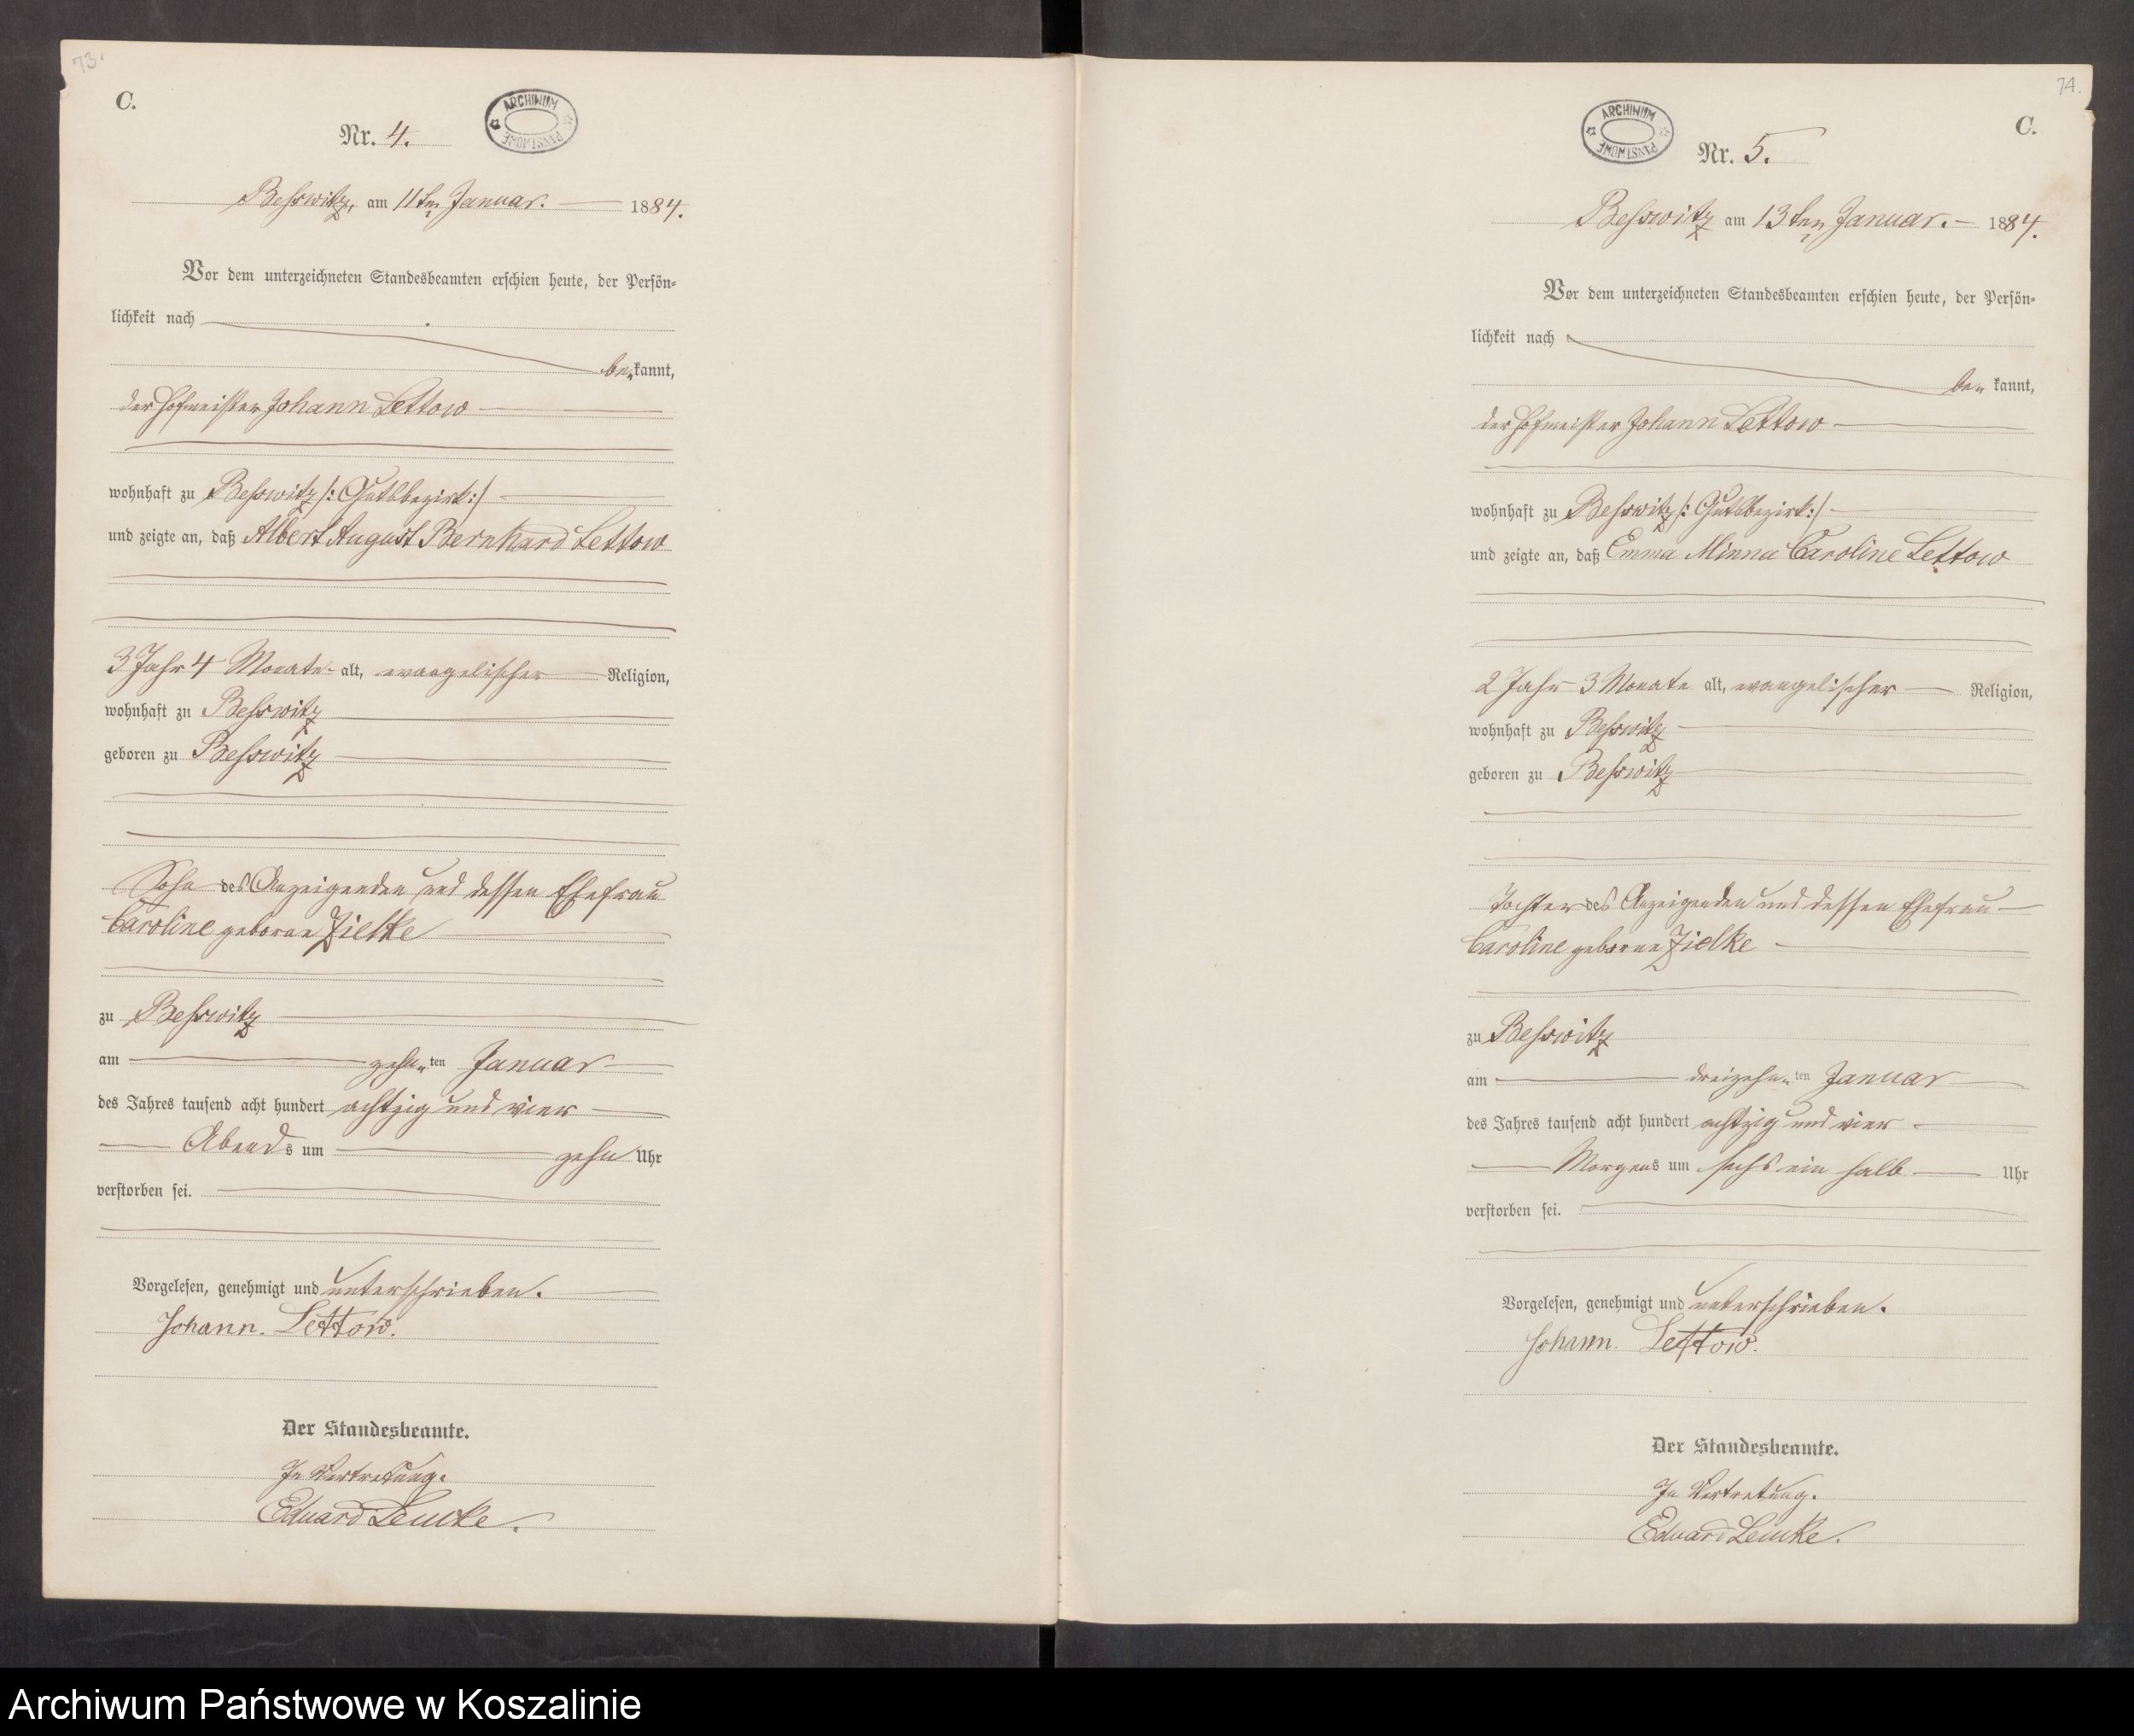 73.
C.
ARCHIWUM PAŃSTWOWE
Nr. 4.
Beßwitz, am 11ten Januar. 1884.
Vor dem unterzeichneten Standesbeamten erschien heute, der Persön-
lichkeit nach
be kannt,
der Hofmeister Johann Lettow
wohnhaft zu Beßwitz /: Gutsbezirk :/
und zeigte an, daß Albert August Bernhard Lettow
3 Jahr 4 Monate alt, evangelischer Religion,
wohnhaft zu Beßwitz
geboren zu Beßwitz
Sohn des Anzeigenden und dessen Ehefrau
Caroline geborne Zielke
zu Beßwitz
am zehn ten Januar
des Jahres tausend acht hundert achtzig und vier
Abends um zehn Uhr
verstorben sei.
Vorgelesen, genehmigt und unterschrieben.
Johann. Lettow.
Der Standesbeamte.
In Vertretung.
Eduard Lemke.
74.
C.
ARCHIWUM PAŃSTWOWE
Nr. 5.
Beßwitz am 13ten Januar. 1884.
Vor dem unterzeichneten Standesbeamten erschien heute, der Persön-
lichkeit nach
be kannt,
der Hofmeister Johann Lettow
wohnhaft zu Beßwitz /: Gutsbezirk :/
und zeigte an, daß Emma Minna Caroline Lettow
2 Jahr 3 Monate alt, evangelischer Religion,
wohnhaft zu Beßwitz
geboren zu Beßwitz
Tochter des Anzeigenden und dessen Ehefrau
Caroline geborne Zielke
zu Beßwitz
am dreizehn ten Januar
des Jahres tausend acht hundert achtzig und vier
Morgens um sechs ein halb Uhr
verstorben sei.
Vorgelesen, genehmigt und unterschrieben.
Johann. Lettow.
Der Standesbeamte.
In Vertretung.
Eduard Lemke.
Archiwum Państwowe w Koszalinie